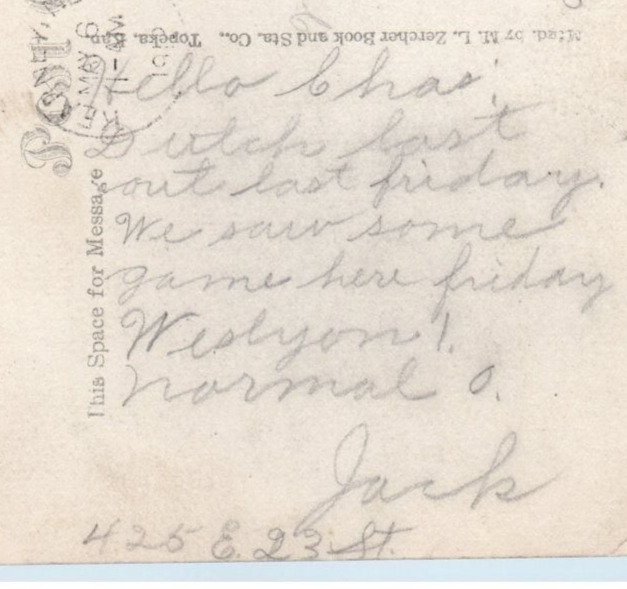 Mfgd. by M. L. Zercher Book and Sta. Co., Topeka, Kan.
This Space for Message
Hello Chas;
Dutch last
out last friday.
We saw some
game here friday
Weslyon 1.
normal 0.
Jack
425 E. 23 St.